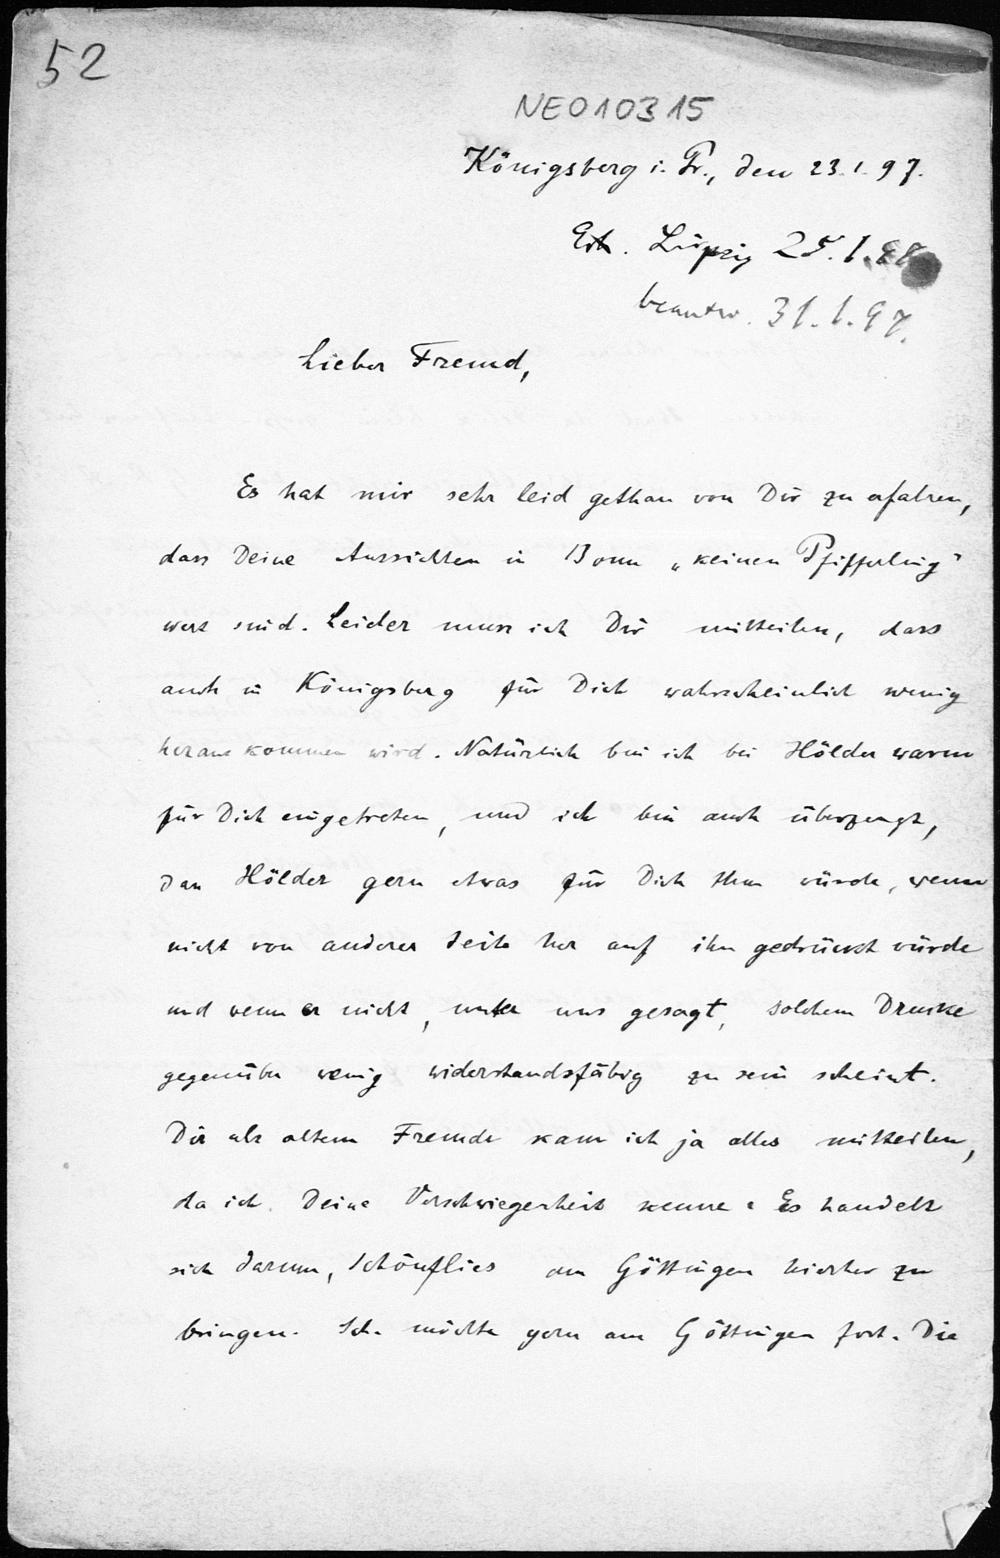 52
NE010315
Königsberg i. Pr., den 23.1.97.
Erh. Leipzig 25.1.
beantw. 31.1.97.
Lieber Freund,
Es hat mir sehr leid gethan von Dir zu erfahren,
dass Deine Aussichten in Bonn „keinen Pfifferling"
wert sind. Leider muss ich Dir mitteilen, dass
auch in Königsberg für Dich wahrscheinlich wenig
heraus kommen wird. Natürlich bin ich bei Hölder warm
für Dich eingetreten, und ich bin auch überzeugt,
dass Hölder gern etwas für Dich thun würde, wenn
nicht von anderer Seite her auf ihn gedrückt würde
und wenn er nicht, unter uns gesagt, solchem Drucke
gegenüber wenig widerstandsfähig zu sein scheint.
Dir als altem Freunde kann ich ja alles mitteilen,
da ich Deine Verschwiegenheit kenne: Es handelt
sich darum, Schönflies aus Göttingen hierher zu
bringen. Sch. möchte gern aus Göttingen fort. Die